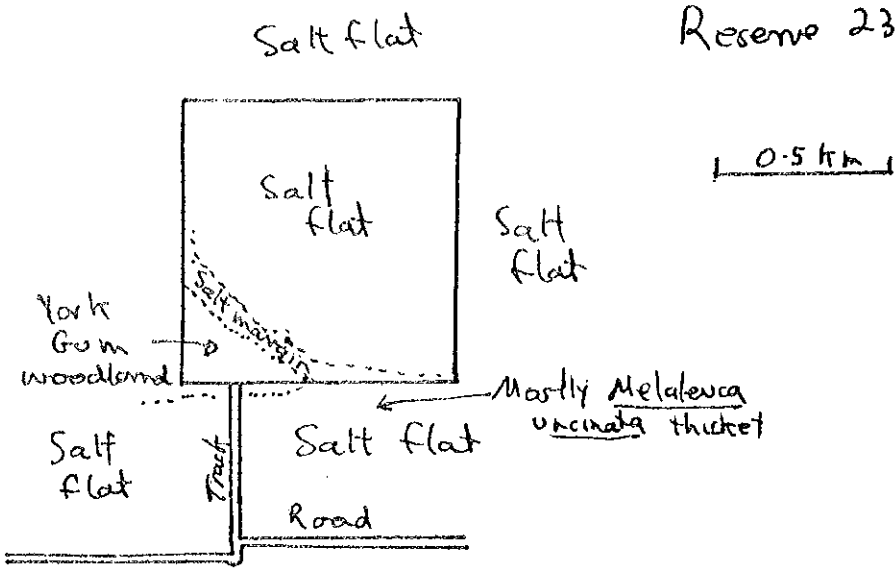 Salt flat
Reserve 23
0.5 km
Salt
flat
Salt
flat
Salt margin
York
Gum
woodland
Mostly Melaleuca
uncinata thicket
Salt flat
Salt
flat
Track
Road